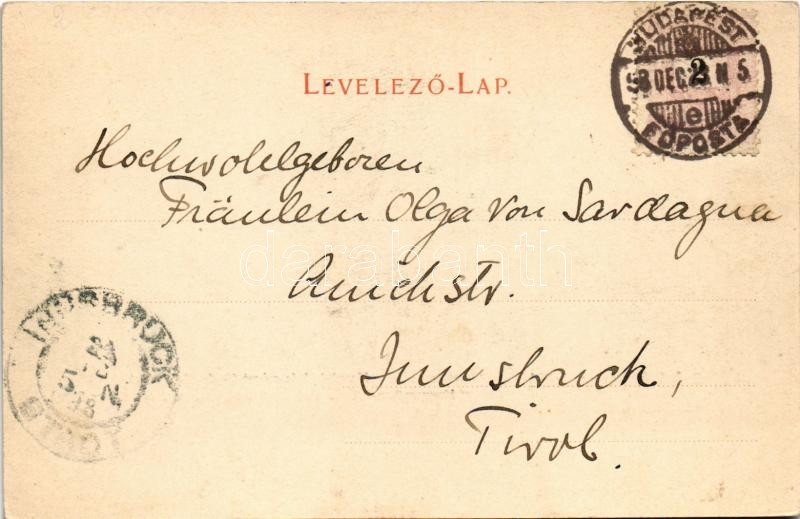 LEVELEZŐ-LAP.
BUDAPEST
98 DEC 28 N 5
e
FŐPOSTA
2
Hochwohlgeboren
Fräulein Olga von Sardagna
Anichstr.
Innsbruck,
Tirol.
INNSBRUCK
darabanth